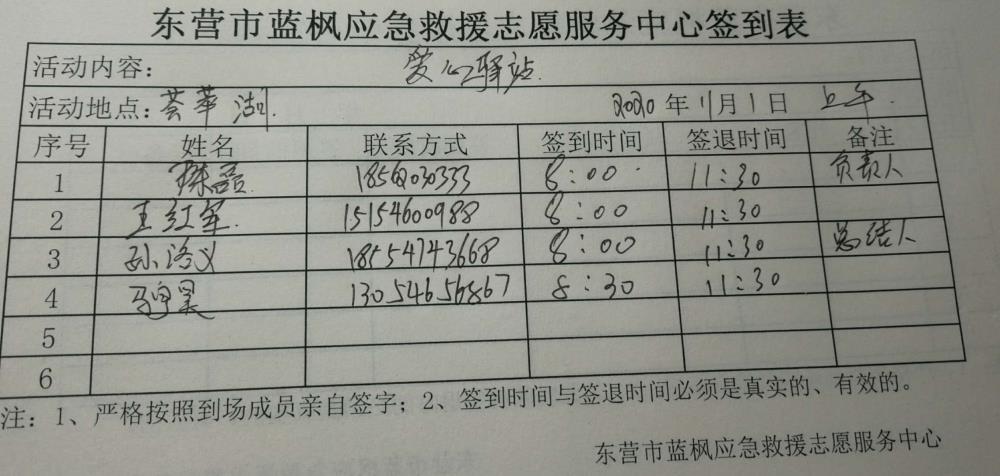 东营市蓝枫应急救援志愿服务中心签到表
活动内容： 爱心驿站.
活动地点：荟萃湖. 2020年11月1日 上午.
序号 姓名 联系方式 签到时间 签退时间 备注
1 陈磊 8:00 11:30 负责人
2 王红军 15154600988 8:00 11:30
3 孙洛义 18554743668 8:00 11:30 总结人
4 13054656867 8:30 11:30
5
6
注：1、严格按照到场成员亲自签字；2、签到时间与签退时间必须是真实的、有效的。
东营市蓝枫应急救援志愿服务中心